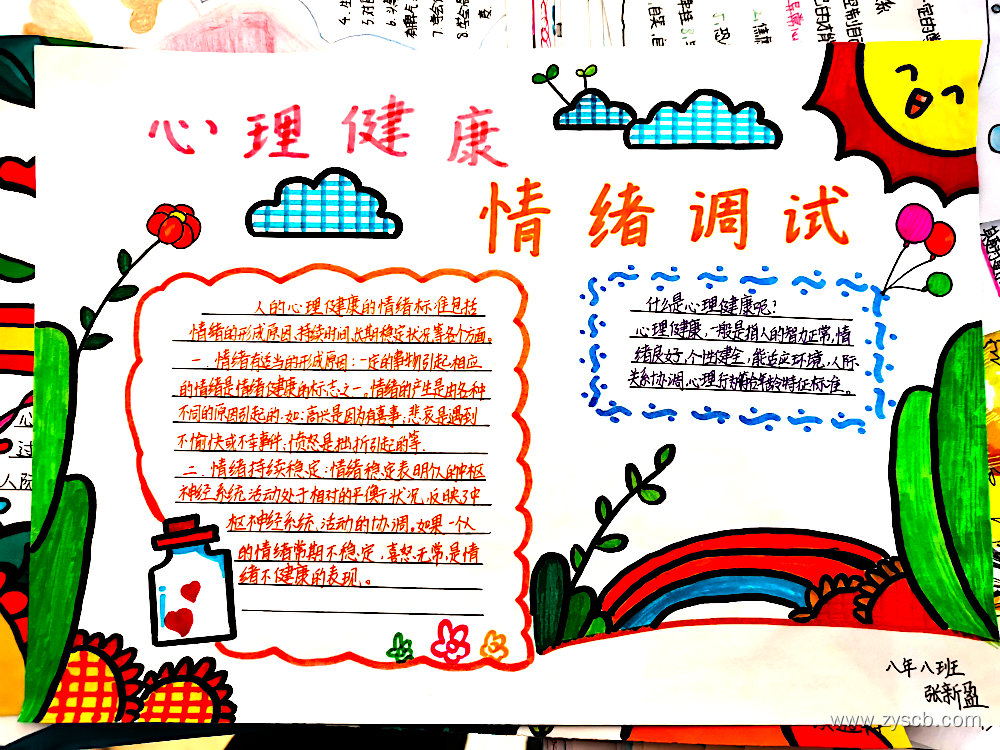 心理健康
情绪调试
人的心理健康的情绪标准包括
情绪的形成原因、持续时间、长期稳定状况等各个方面。
一.情绪有适当的形成原因:一定的事物引起相应
的情绪是情绪健康的标志之一。情绪的产生是由各种
不同的原因引起的.如:高兴是因为有喜事,悲哀是遇到
不愉快或不幸事件,愤怒是挫折引起的等.
二.情绪持续稳定:情绪稳定表明个人的中枢
神经系统活动处于相对的平衡状况,反映了中
枢神经系统活动的协调。如果一个人
的情绪常期不稳定,喜怒无常是情
绪不健康的表现.。
什么是心理健康呢?
心理健康,一般是指人的智力正常,情
绪良好,个性健全,能适应环境,人际
关系协调,心理行为符合年龄特征标准。
八年八班
张新盈
www.zyscb.com